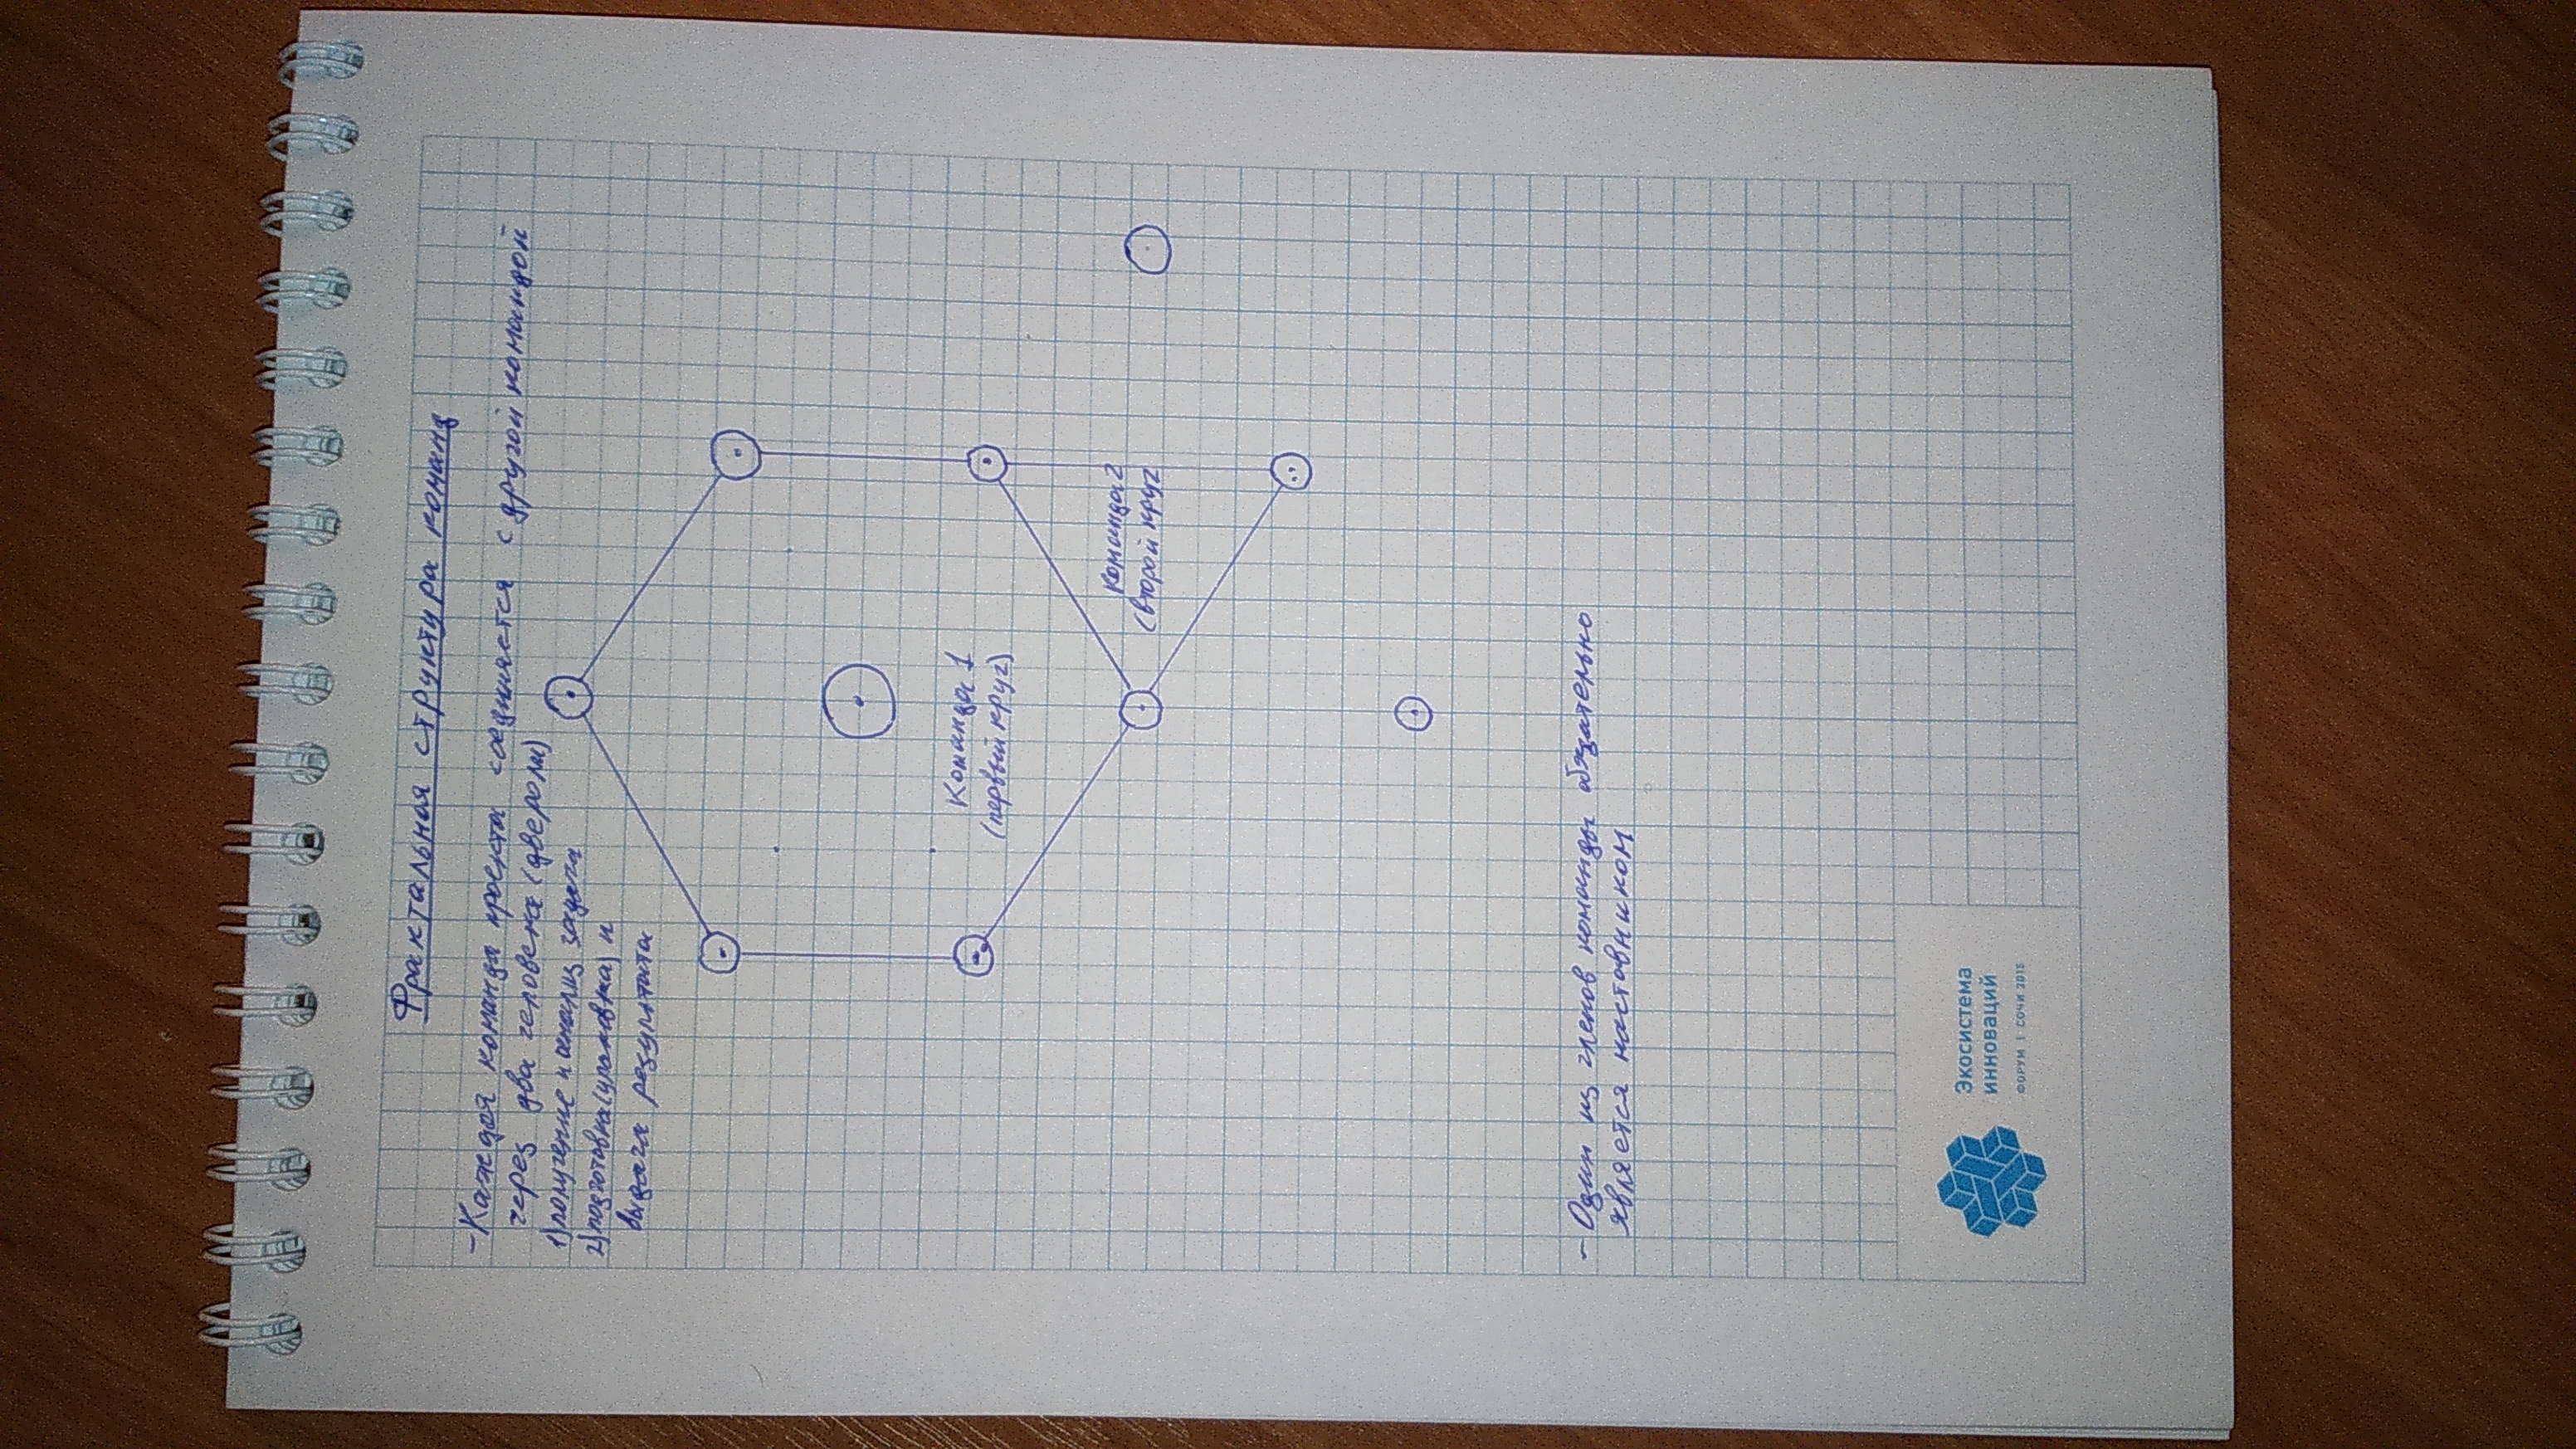 Фрактальная структура команд
- Каждая команда проекта соединяется с другой командой
через два человека (две роли)
1) получение и анализ задачи
2) подготовка (упаковка) и
выдача результата
Команда 1
(первый круг)
Команда 2
(второй круг
- Один из членов команды обязательно
является наставником
Экосистема
инноваций
ФОРУМ | СОЧИ 2015